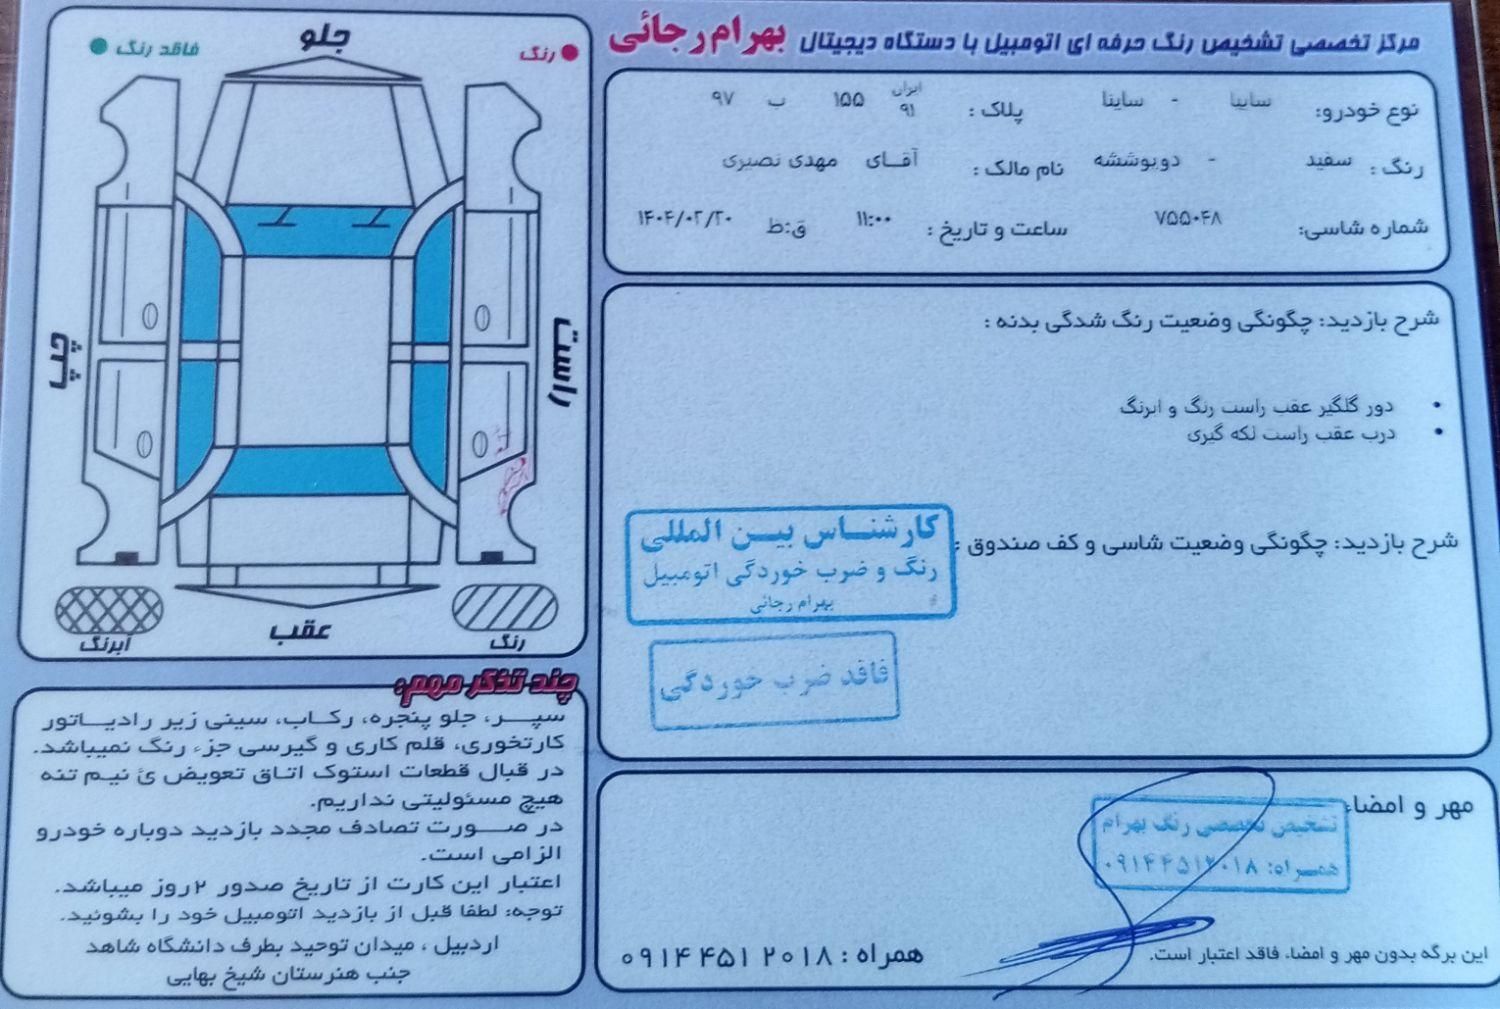 مرکز تخصصی تشخیص رنگ حرفه ای اتومبیل با دستگاه دیجیتال بهرام رجائی
نوع خودرو: سایپا - ساینا پلاک : ایران ۹۱ ۱۵۵ ب ۹۷
رنگ : سفید - دوپوششه نام مالک : آقـای مهدی نصیری
شماره شاسی: ۷۵۵۰۴۸ ساعت و تاریخ : ۱۱:۰۰ ق:ظ ۱۴۰۴/۰۲/۲۰
شرح بازدید: چگونگی وضعیت رنگ شدگی بدنه :
• دور گلگیر عقب راست رنگ و ابرنگ
• درب عقب راست لکه گیری
شرح بازدید: چگونگی وضعیت شاسی و کف صندوق :
کارشنـاس بیـن المللی
رنگ و ضرب خوردگی اتومبیل
بهرام رجائی
فاقد ضرب خوردگی
مهر و امضاء
تشخیص تخصصی رنگ بهرام
همـراه: ۰۹۱۴۴۵۱۲۰۱۸
این برگه بدون مهر و امضاء، فاقد اعتبار است.
همراه : ۰۹۱۴ ۴۵۱ ۲۰۱۸
رنگ
جلو
فاقد رنگ
راست
چپ
رنگ
عقب
آبرنگ
چند تذکر مهم:
سپـــر، جلو پنجره، رکـاب، سینی زیر رادیـــاتور
کارتخوری، قلم کاری و گیرسی جزء رنگ نمیباشد.
در قبال قطعات استوک اتاق تعویض ئ نیم تنه
هیچ مسئولیتی نداریم.
در صـــورت تصادف مجدد بازدید دوباره خودرو
الزامی است.
اعتبار این کارت از تاریخ صدور ۲روز میباشد.
توجه: لطفا قبل از بازدید اتومبیل خود را بشوئید.
اردبیل ، میدان توحید بطرف دانشگاه شاهد
جنب هنرستان شیخ بهایی